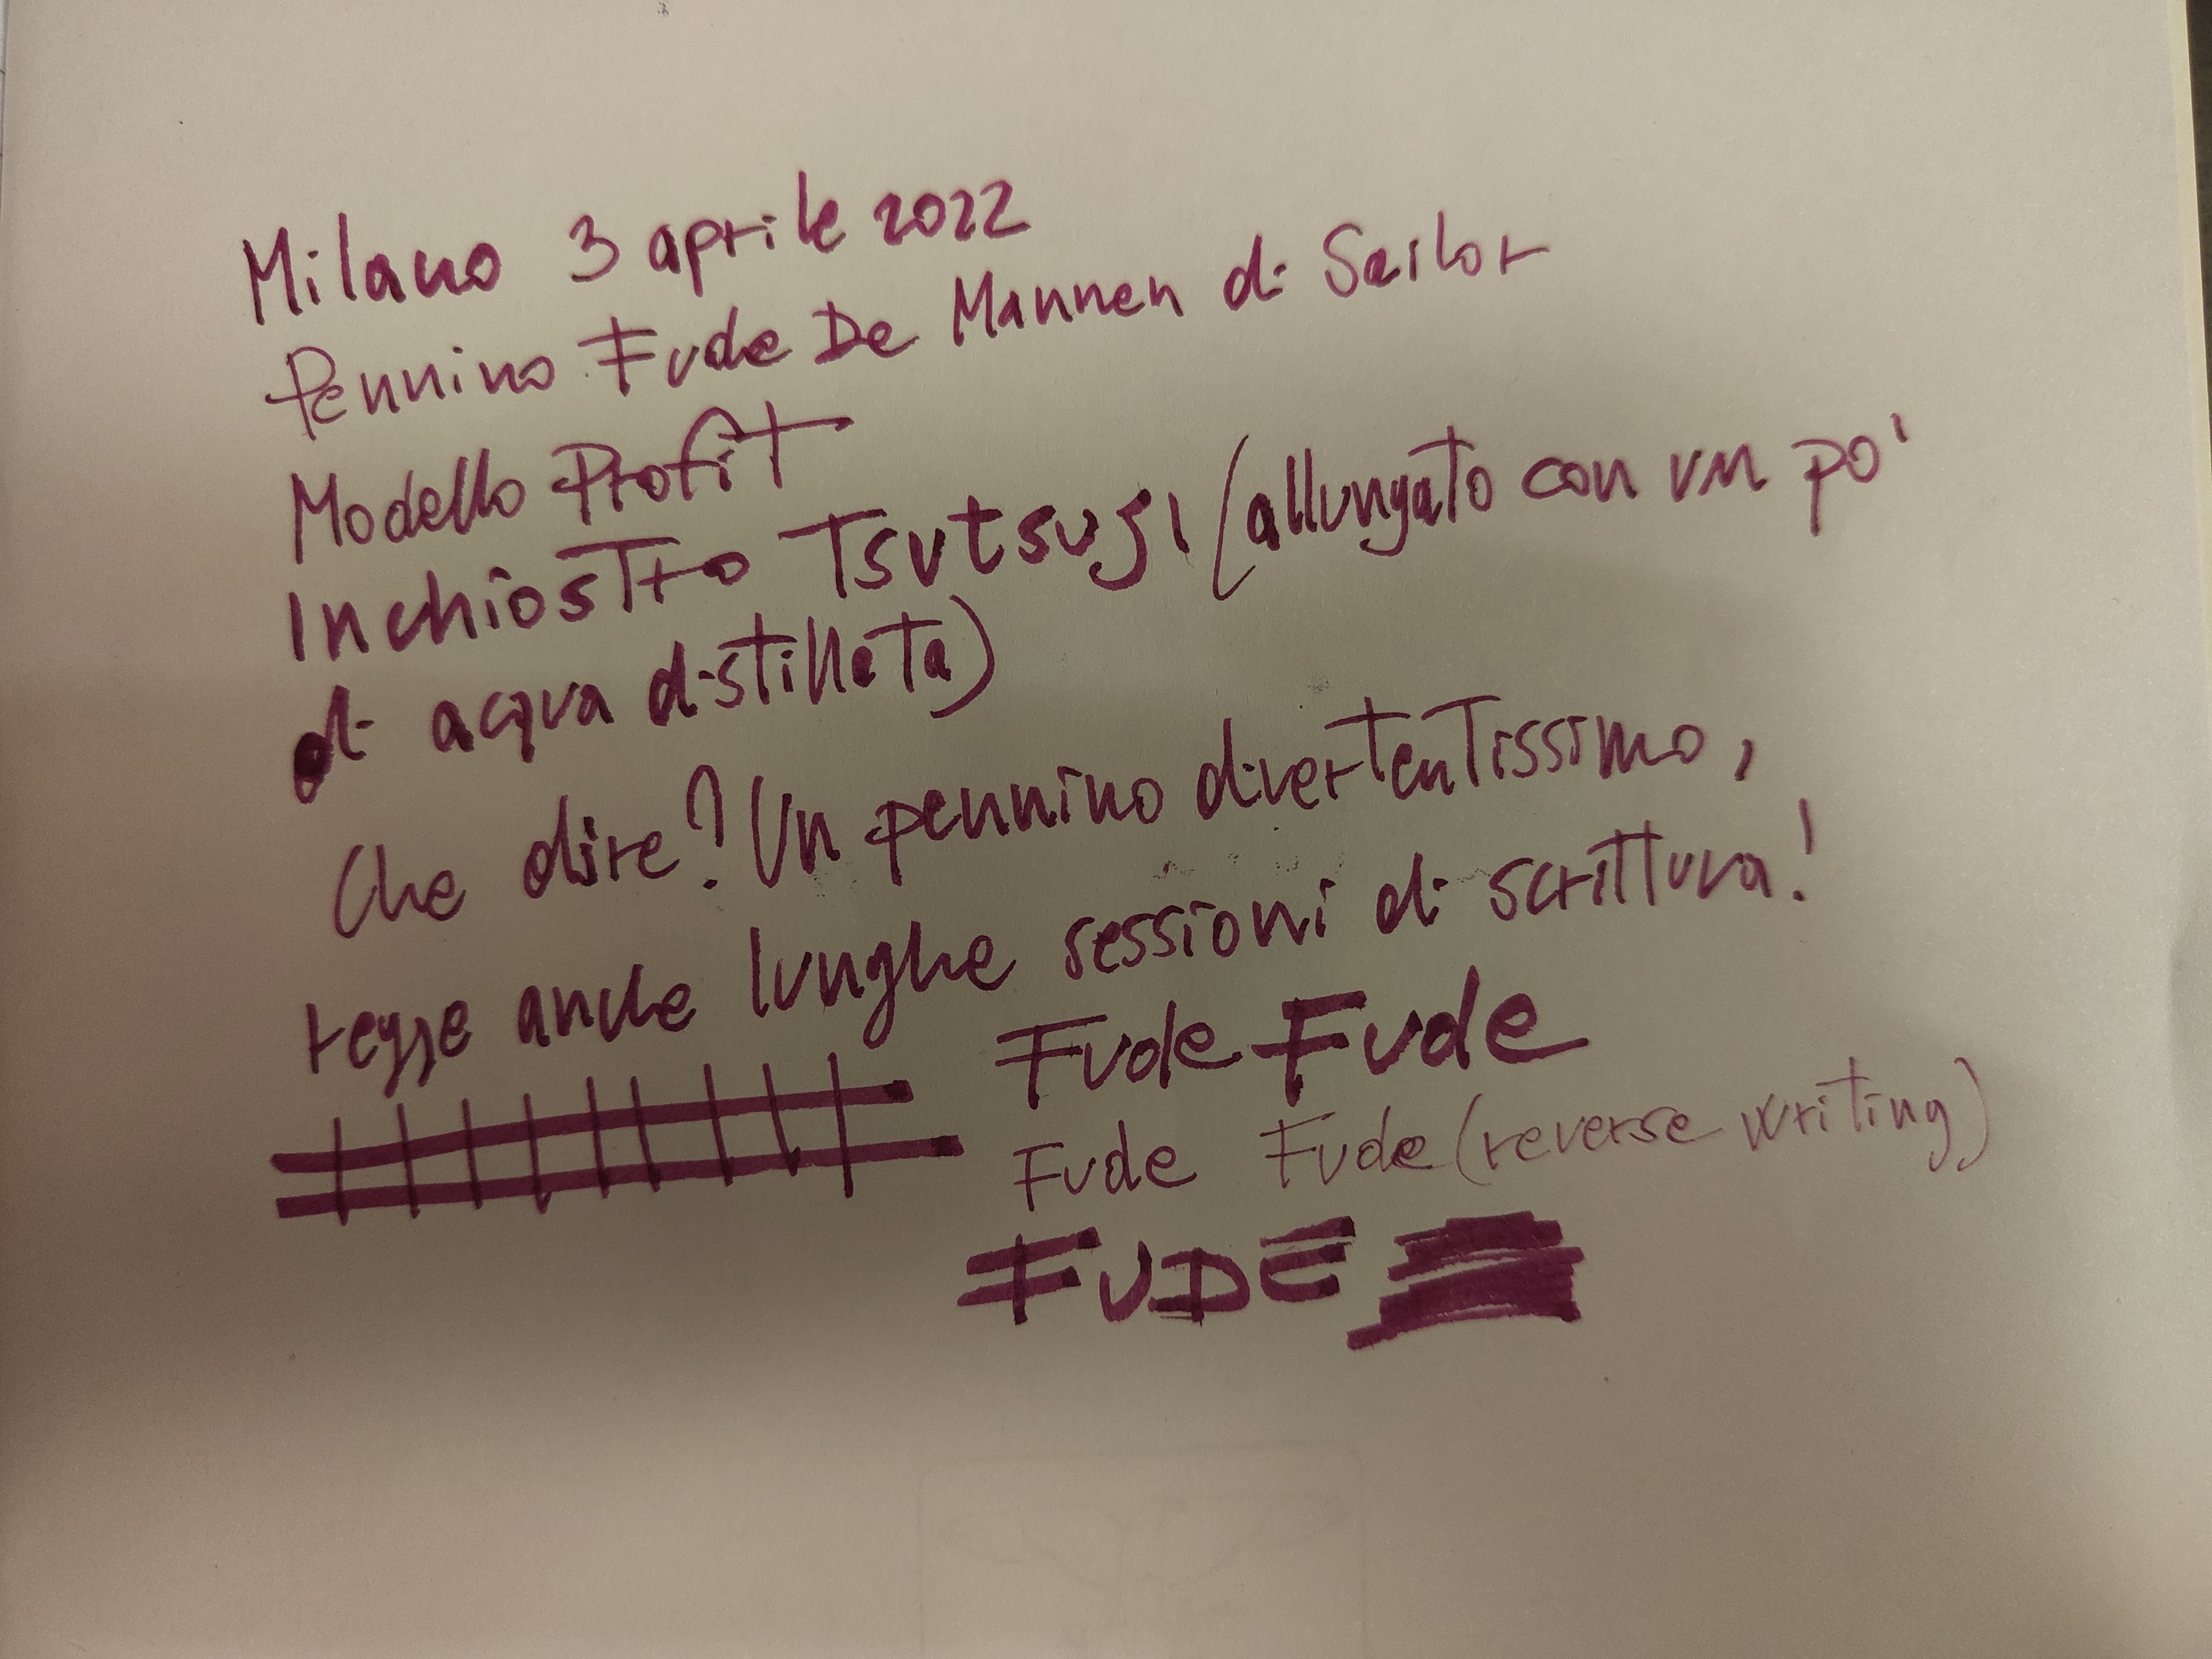 Milano 3 aprile 2022
Pennino Fude De Mannen di Sailor
Modello Profit
Inchiostro Tsutsugi (allungato con un po'
di acqua distillata)
Che dire? Un pennino divertentissimo,
regge anche lunghe sessioni di scrittura!
Fude Fude
Fude Fude (reverse writing)
FUDE